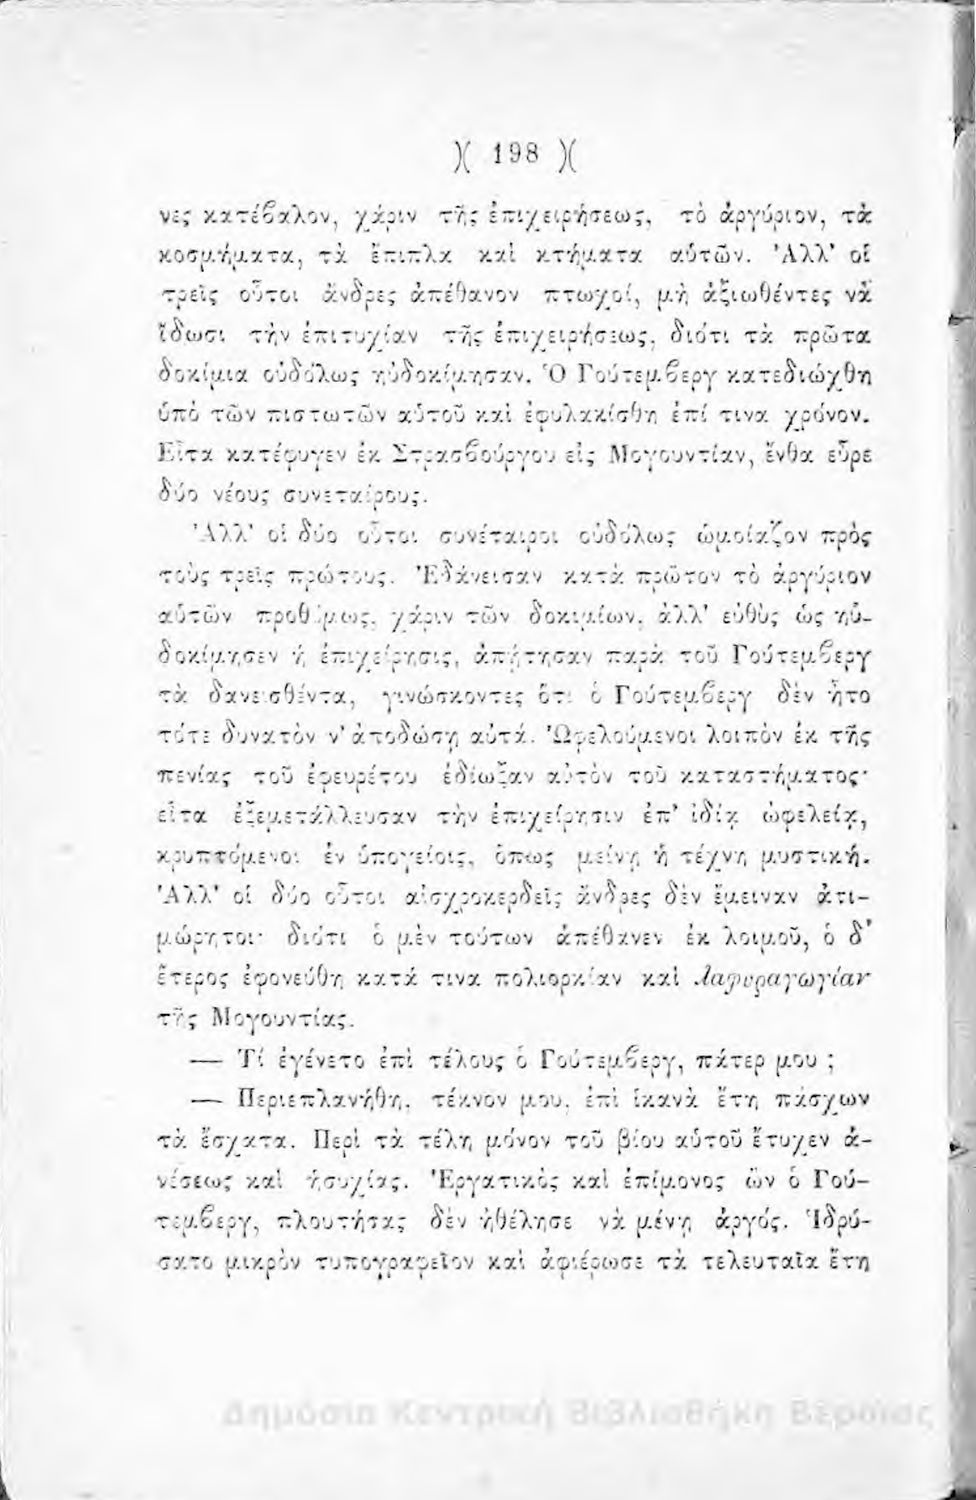 )( 198 )(
νες κατέβαλον, χάριν τῆς ἐπιχειρήσεως, τὸ ἀργύριον, τὰ
κοσμήματα, τὰ ἔπιπλα καὶ κτήματα αὑτῶν. Ἀλλ' οἱ
τρεῖς οὗτοι ἄνδρες ἀπέθανον πτωχοί, μὴ ἀξιωθέντες νὰ
ἴδωσι τὴν ἐπιτυχίαν τῆς ἐπιχειρήσεως, διότι τὰ πρῶτα
δοκίμια οὐδόλως ηὐδοκίμησαν. Ὁ Γούτεμβεργ κατεδιώχθη
ὑπὸ τῶν πιστωτῶν αὑτοῦ καὶ ἐφυλακίσθη ἐπί τινα χρόνον.
Εἶτα κατέφυγεν ἐκ Στρασβούργου εἰς Μογουντίαν, ἔνθα εὗρε
δύο νέους συνεταίρους.
Ἀλλ' οἱ δύο οὗτοι συνέταιροι οὐδόλως ὡμοίαζον πρὸς
τοὺς τρεῖς πρώτους. Ἐδάνεισαν κατὰ πρῶτον τὸ ἀργύριον
αὑτῶν προθύμως, χάριν τῶν δοκιμίων, ἀλλ' εὐθὺς ὡς ηὐ-
δοκίμησεν ἡ ἐπιχείρησις, ἀπῄτησαν παρὰ τοῦ Γούτεμβεργ
τὰ δανεισθέντα, γινώσκοντες ὅτι ὁ Γούτεμβεργ δὲν ἦτο
τότε δυνατὸν ν' ἀποδώσῃ αὐτά. Ὠφελούμενοι λοιπὸν ἐκ τῆς
πενίας τοῦ ἐφευρέτου ἐδίωξαν αὐτὸν τοῦ καταστήματος·
εἶτα ἐξεμετάλλευσαν τὴν ἐπιχείρησιν ἐπ' ἰδίᾳ ὠφελείᾳ,
κρυπτόμενοι ἐν ὑπογείοις, ὅπως μείνῃ ἡ τέχνη μυστική.
Ἀλλ' οἱ δύο οὗτοι αἰσχροκερδεῖς ἄνδρες δὲν ἔμειναν ἀτι-
μώρητοι· διότι ὁ μὲν τούτων ἀπέθανεν ἐκ λοιμοῦ, ὁ δ'
ἕτερος ἐφονεύθη κατά τινα πολιορκίαν καὶ λαφυραγωγίαν
τῆς Μογουντίας.
— Τί ἐγένετο ἐπὶ τέλους ὁ Γούτεμβεργ, πάτερ μου ;
— Περιεπλανήθη, τέκνον μου, ἐπὶ ἱκανὰ ἔτη πάσχων
τὰ ἔσχατα. Περὶ τὰ τέλη μόνον τοῦ βίου αὑτοῦ ἔτυχεν ἀ-
νέσεως καὶ ἡσυχίας. Ἐργατικὸς καὶ ἐπίμονος ὢν ὁ Γού-
τεμβεργ, πλουτήσας δὲν ἠθέλησε νὰ μένῃ ἀργός. Ἱδρύ-
σατο μικρὸν τυπογραφεῖον καὶ ἀφιέρωσε τὰ τελευταῖα ἔτη
Δημόσια Κεντρική Βιβλιοθήκη Βέροιας